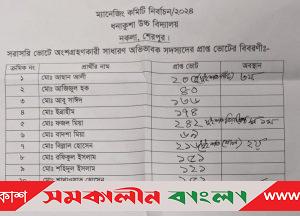 ম্যানেজিং কমিটি নির্বাচন/২০২৪
ধনাকুশা উচ্চ বিদ্যালয়
নকলা, শেরপুর।
সরাসরি ভোটে অংশগ্রহণকারী সাধারণ অভিভাবক সদস্যদের প্রাপ্ত ভোটের বিবরণীঃ-
ক্রমিক নং প্রার্থীর নাম প্রাপ্ত ভোট অবস্থান
১ মোঃ আহান আলী ৩য়
২ মোঃ অজিজুল হক ৪০
৩ মোঃ আবু সাঈদ ১৩৬
৪ মোঃ ইব্রাহীম ১৭৪
৫ মোঃ ফজল মিয়া ২৪২ ১ম
৬ মোঃ বাদশা মিয়া ৬৯
৭ মোঃ বিল্লাল হোসেন ২য়
৮ মোঃ রফিকুল ইসলাম ১৫১
৯ মোঃ শহিদুল ইসলাম ১২১
মোঃ হোসেন
কাশ সমকালীন বাংলা